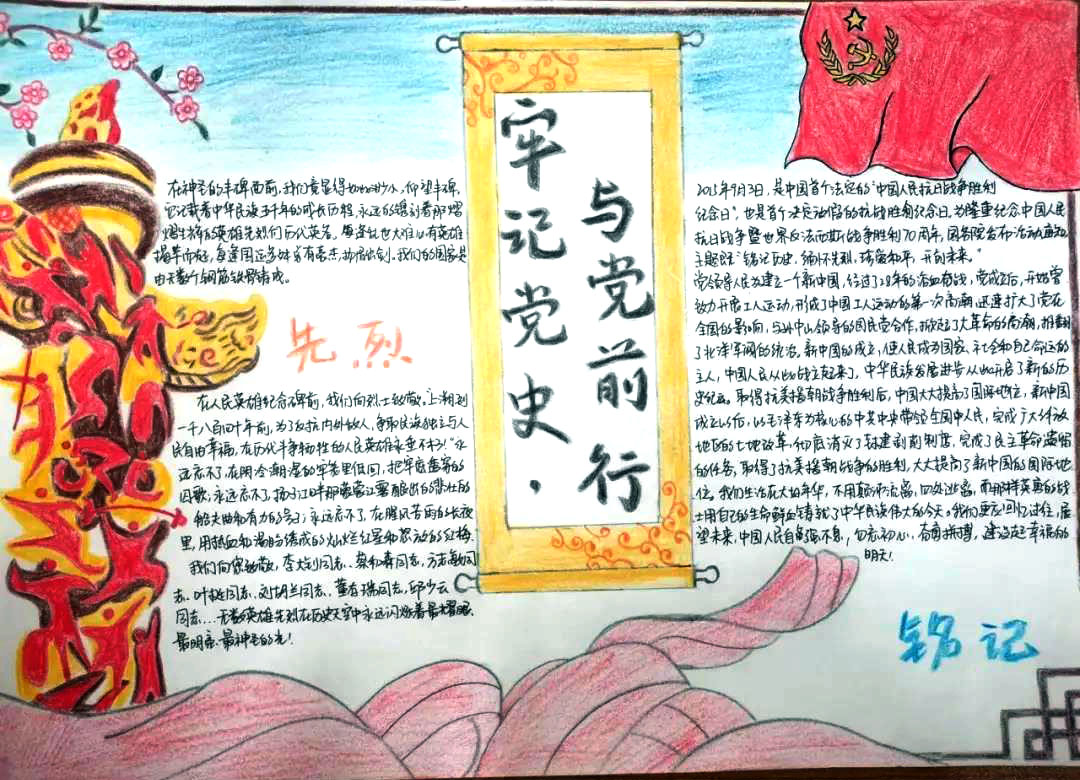 牢记党史·
与党前行
在神圣的丰碑面前,我们竟显得如此渺小,仰望丰碑,
它记载着中华民族五千年的成长历程,永远的镌刻着那熠
熠生辉的英雄先烈们历代英名。
揭竿而起,每逢国运多舛
由无数个钢筋铁骨铸成。
先烈
在人民英雄纪念碑前,我们向烈士致敬。上溯到
一千八百四十年前,为了反抗内外敌人,争取民族独立与人
民自由幸福,在历代斗争中牺牲的人民英雄永垂不朽!永
远忘不了,在阴冷潮湿的牢笼里低回,把牢底坐穿的
囚歌;永远忘不了,扬子江畔那
船夫曲和有力的号子;永远忘不了,在腥风苦雨的长夜
里,用热血和
我们向您致敬,李大钊同志、蔡和森同志、方志敏同
志、叶挺同志、刘胡兰同志、董存瑞同志、邱少云
同志....无数英雄先烈在历史天空中永远闪烁着最耀眼、
最明亮、最神圣的光!
2015年9月3日,是中国首个法定的“中国人民抗日战争胜利
纪念日”,也是首个决定放假的抗战胜利纪念日。为隆重纪念中国人民
抗日战争暨世界反法西斯战争胜利70周年,国务院发布活动通知
主题既“铭记历史、缅怀先烈、珍爱和平、开创未来。”
党领导人民为建立一个新中国,经过了28年的浴血奋战,党成立后,开始曾
致力开展工人运动,形成了中国工人运动的第一次高潮,迅速扩大了党在
全国的影响,与孙中山领导的国民党合作,掀起了大革命的高潮,推翻
了北洋军阀的统治。新中国的成立,使人民成为国家、社会和自己命运的
主人,中国人民从此站立起来了,中华民族发展进步从此开启了新的历
史纪元。取得抗美援朝战争胜利后,中国大大提高了国际地位,新中国
成立以后,以毛泽东为核心的中共中央带领全国中人民,完成了大陆
地区的土地改革,彻底消灭了封建剥削制度,完成了民主革命遗留
的任务,取得了抗美援朝战争的胜利,大大提高了新中国的国际地
位。我们生活在大好年华,不用颠沛流离,四处逃窜,而那群英勇的战
士用自己的生命鲜血铸就了中华民族伟大的今天。我们更应回忆过往,展
望未来,中国人民自强不息,勿忘初心,奋勇拼搏,建设起幸福的
明天!
铭记